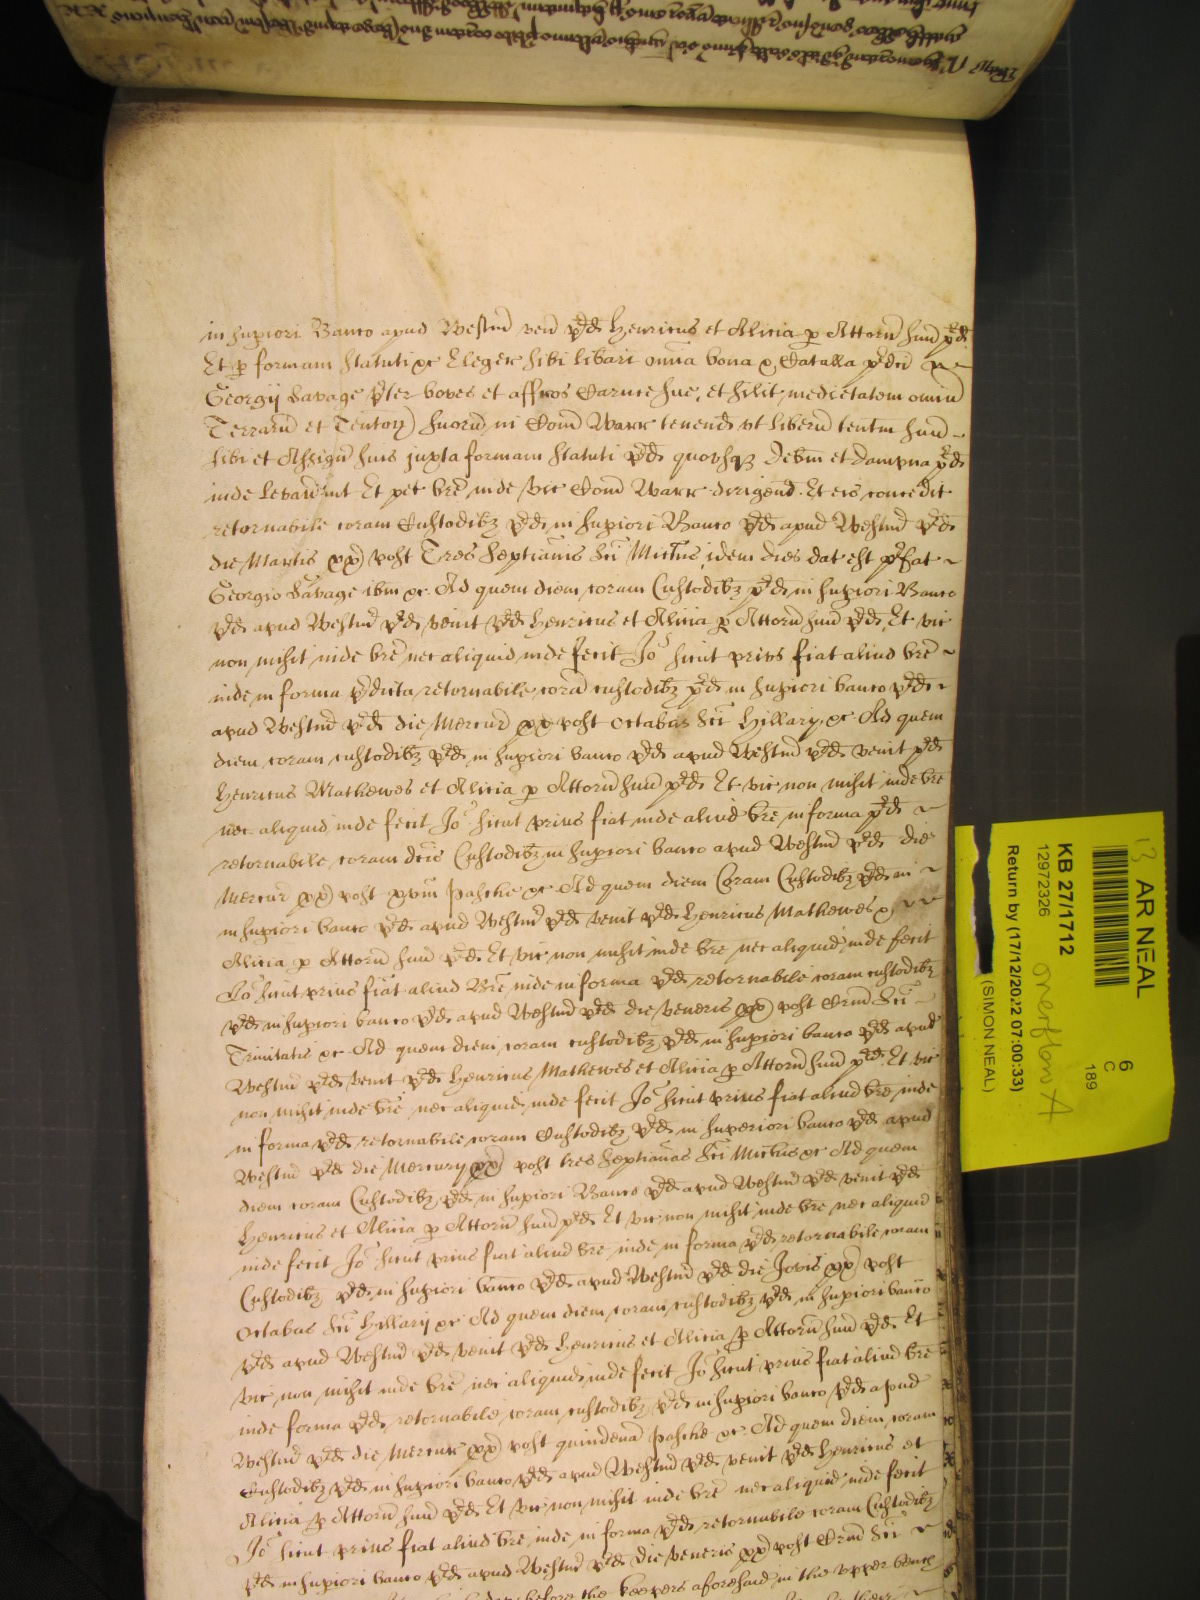 in supiori Banco apud Westm̃ ven p̃d Henricus et Alicia p Attorñ suũ p̃d
Et p formam statuti &c Eleger sibi libari omia bona & Catalla p̃dci
Georgij Savage p̃ter boves et affros Caruce sue, et silit medietatem omiũ
Terrarũ et Tentor suorũ in Com Warr tenend ut liberũ tentm suũ
sibi et Assigñ suis juxta formam statuti p̃d quousq Debm et dampna p̃d
inde levaverint Et pet bre inde vic Com Warr dirigend. Et eis conceditr
retornabile coram Custodibz p̃d in supiori Banco p̃d apud Westm̃ p̃d
die Martis px post Tres septianis Sci Michis, idem dies dat est p̃fat
Georgio Savage ibm &c. Ad quem diem coram Custodibz p̃d in supiori Banco
p̃d apud Westm̃ p̃d venit p̃d Henricus et Alicia p Attorñ suũ p̃d, Et vic
non misit inde bre nec aliquid inde fecit Jo sicut prius fiat aliud bre
inde in forma p̃dicta retornabile corã custodibz p̃d in supiori banco p̃d
apud Westm̃ p̃d die Mercur px post Octabas Sci Hillary, &c Ad quem
diem coram custodibz p̃d in supiori banco p̃d apud Westm̃ p̃d venit p̃d
Henricus Mathewes et Alicia p Attorñ suũ p̃d Et vic non misit inde bre
nec aliquid inde fecit Jo sicut prius fiat inde aliud bre in forma p̃d
retornabile coram dcis Custodibz in supiori banco apud Westm̃ p̃d die
Mercur px post xvm Pasche &c Ad quem diem Coram Custodibz p̃d in
in supiori banco p̃d apud Westm̃ p̃d venit p̃d Henricus Mathewes &
Alicia p Attorñ suũ p̃d Et vic non misit inde bre nec aliquid inde fecit
Jo sicut prius fiat aliud Bre inde in forma p̃d retornabile coram custodibz
p̃d in supiori banco p̃d apud Westm̃ p̃d die Veneris px post Crm̃ Sci
Trinitatis &c Ad quem diem coram custodibz p̃d in supiori banco p̃d apud
Westm̃ p̃d venit p̃d Henricus Mathewes et Alicia p Attorñ suũ p̃d Et vic
non misit inde bre nec aliquid inde fecit Jo sicut prius fiat aliud bre inde
in forma p̃d retornabile coram Custodibz p̃d in superiori banco p̃d apud
Westm̃ p̃d die Mercury px post tres septianas Sci Michis &c Ad quem
diem coram Custodibz p̃d in supiori Banco p̃d apud Westm̃ p̃d venit p̃d
Henricus et Alicia p Attorñ suũ p̃d Et vic non misit inde bre nec aliquid
inde fecit Jo sicut prius fiat aliud bre inde in forma p̃d retornabile coram
Custodibz p̃d in supiori banco p̃d apud Westm̃ p̃d die Jovis px post
Octabas Sci Hillarij &c Ad quem diem coram custodibz p̃d in supiori banco
p̃d apud Westm̃ p̃d venit p̃d Henricus et Alicia p Attorñ suũ p̃d Et
vic non misit inde bre nec aliquid inde fecit Jo sicut prius fiat aliud bre
inde forma p̃d retornabile coram custodibz p̃d in supiori banco p̃d apud
Westm̃ p̃d die Mercur px post quindenã Pasche &c Ad quem diem coram
Custodibz p̃d in supiori banco p̃d apud Westm̃ p̃d venit p̃d Henricus et
Alicia p Attorñ suũ p̃d Et vic non misit inde bre nec aliquid inde fecit
Jo sicut prius fiat aliud bre inde in forma p̃d retornabile coram Custodibz
p̃d in supiori banco p̃d apud Westm̃ p̃d die Veneris px post Crm̃ Sci
before the keepers aforesaid in the upper bench
13 AR NEAL
6
C
189
KB 27/1712
12972326
Return by (17/12/2022 07:00:33)
(SIMON NEAL)